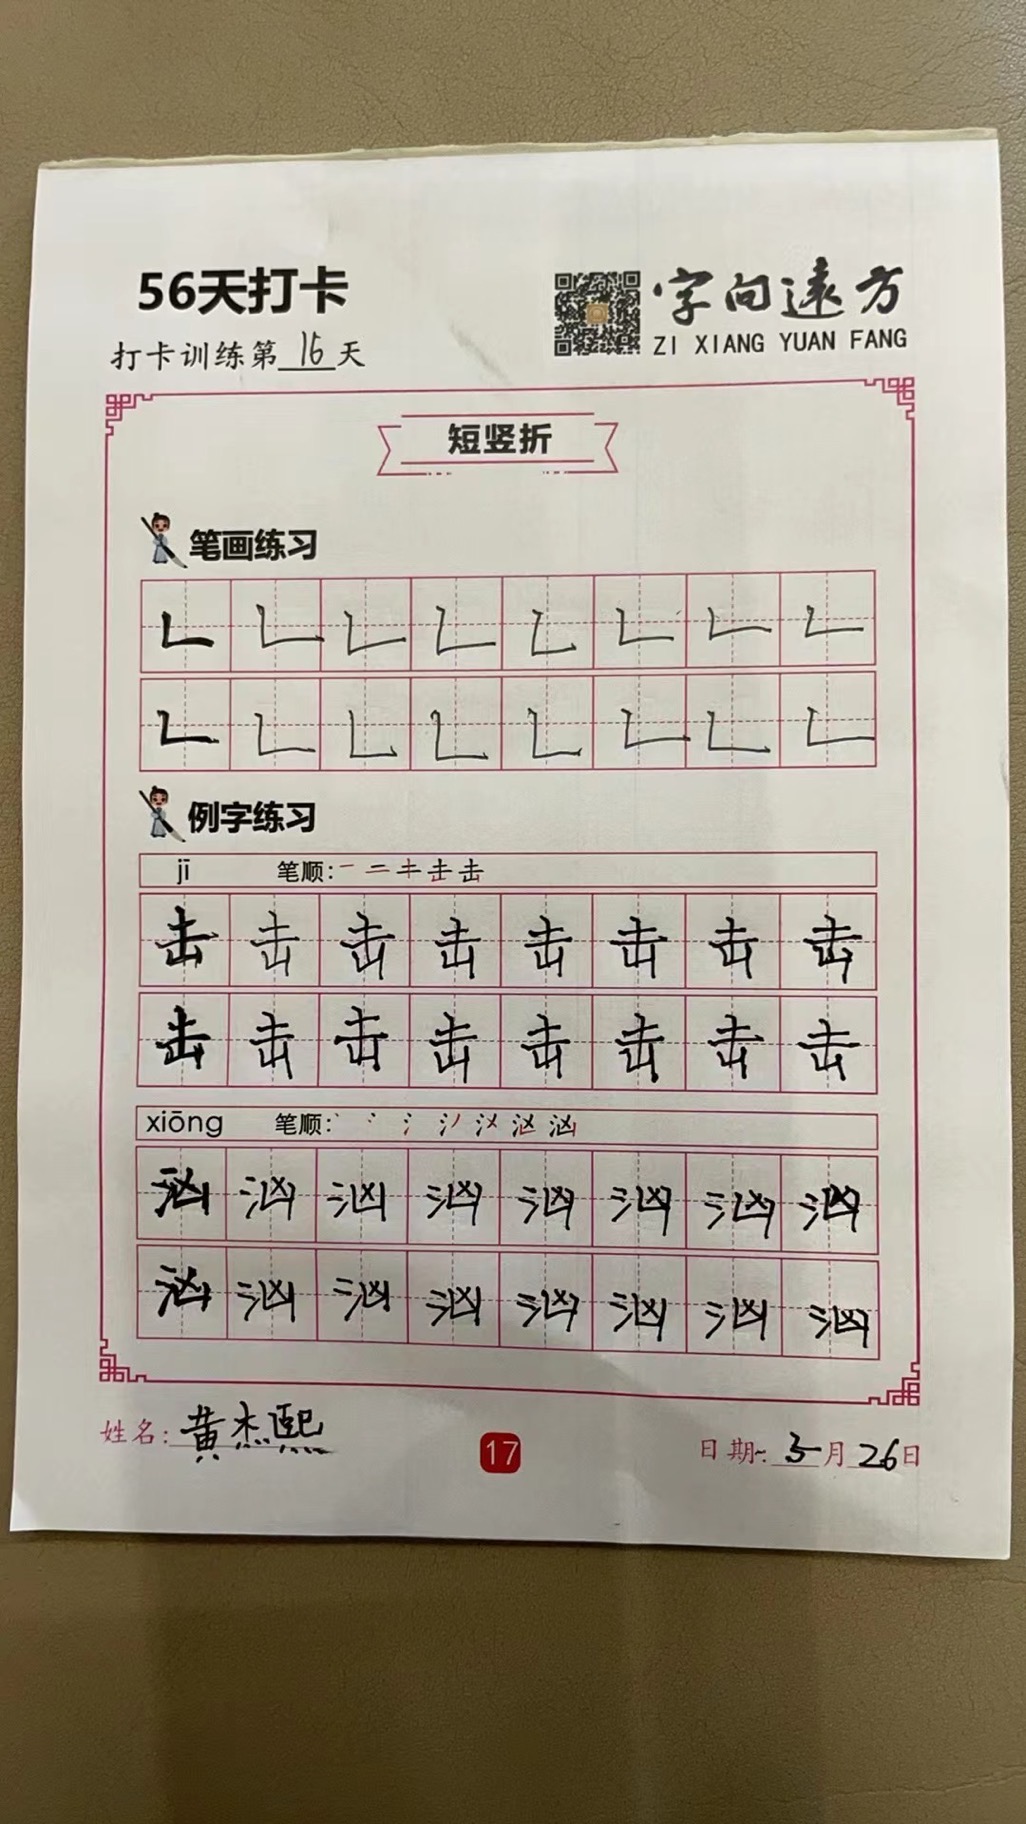 56天打卡
字向远方
ZI XIANG YUAN FANG
打卡训练第16天
短竖折
笔画练习
𠃊 𠃊 𠃊 𠃊 𠃊 𠃊 𠃊 𠃊
𠃊 𠃊 𠃊 𠃊 𠃊 𠃊 𠃊 𠃊
例字练习
jī 笔顺:一 二 キ 击 击
击 击 击 击 击 击 击 击
击 击 击 击 击 击 击 击
xiōng 笔顺:丶 冫 氵 汹 汹
汹 汹 汹 汹 汹 汹 汹 汹
汹 汹 汹 汹 汹 汹 汹 汹
姓名:黄杰熙
17
日期:3月26日